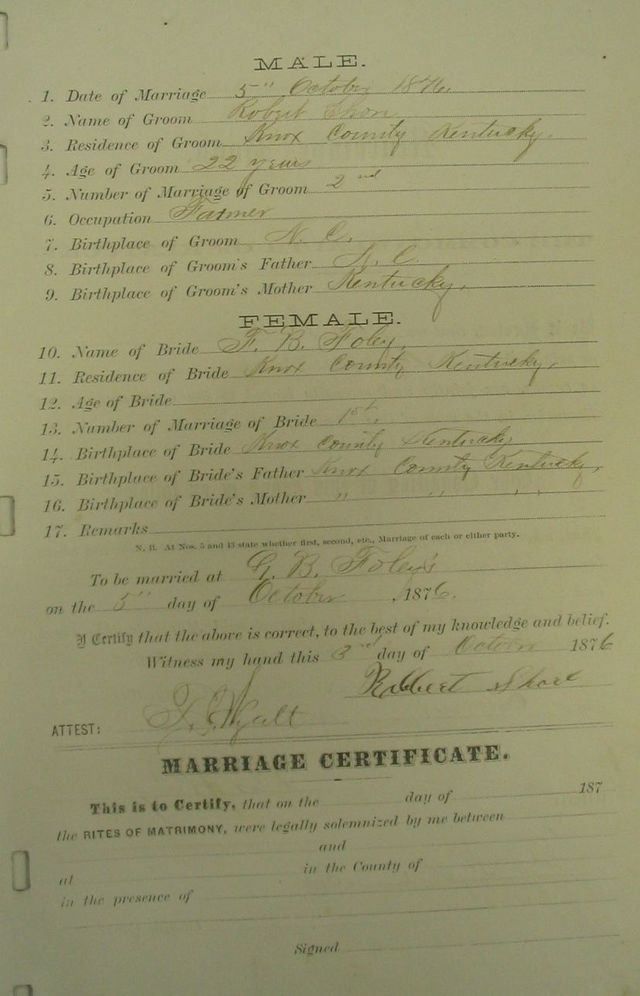 MALE.
1. Date of Marriage 5" October 1876.
2. Name of Groom Robert
3. Residence of Groom Knox County Kentucky.
4. Age of Groom 22 years
5. Number of Marriage of Groom 2nd
6. Occupation Farmer
7. Birthplace of Groom N. C.
8. Birthplace of Groom's Father N. C.
9. Birthplace of Groom's Mother Kentucky,
FEMALE.
10. Name of Bride F. B. Foley,
11. Residence of Bride Knox County Kentucky,
12. Age of Bride
13. Number of Marriage of Bride 1st,
14. Birthplace of Bride Knox County Kentucky
15. Birthplace of Bride's Father Knox County Kentucky,
16. Birthplace of Bride's Mother " " "
17. Remarks
N. B. At Nos. 5 and 13 state whether first, second, etc., Marriage of each or either party.
To be married at G. B. Foley's
on the 5" day of October, 1876.
I Certify that the above is correct, to the best of my knowledge and belief.
Witness my hand this 3d day of October 1876
Robbert
ATTEST: Wyatt
MARRIAGE CERTIFICATE.
This is to Certify, that on the day of 187
the RITES OF MATRIMONY, were legally solemnized by me between
and
at in the County of
in the presence of
Signed